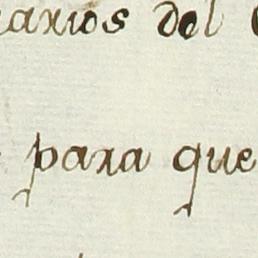 arios del
para que